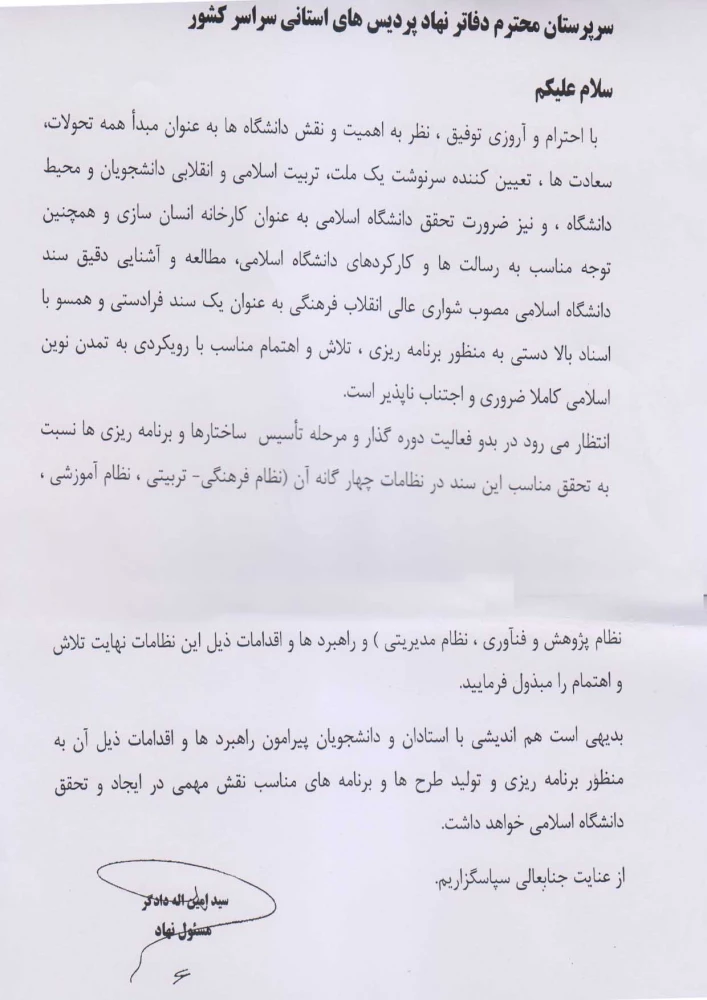 سرپرستان محترم دفاتر نهاد پردیس های استانی سراسر کشور
سلام علیکم
با احترام و آروزی توفیق ، نظر به اهمیت و نقش دانشگاه ها به عنوان مبدأ همه تحولات،
سعادت ها ، تعیین کننده سرنوشت یک ملت، تربیت اسلامی و انقلابی دانشجویان و محیط
دانشگاه ، و نیز ضرورت تحقق دانشگاه اسلامی به عنوان کارخانه انسان سازی و همچنین
توجه مناسب به رسالت ها و کارکردهای دانشگاه اسلامی، مطالعه و آشنایی دقیق سند
دانشگاه اسلامی مصوب شواری عالی انقلاب فرهنگی به عنوان یک سند فرادستی و همسو با
اسناد بالا دستی به منظور برنامه ریزی ، تلاش و اهتمام مناسب با رویکردی به تمدن نوین
اسلامی کاملا ضروری و اجتناب ناپذیر است.
انتظار می رود در بدو فعالیت دوره گذار و مرحله تأسیس ساختارها و برنامه ریزی ها نسبت
به تحقق مناسب این سند در نظامات چهار گانه آن (نظام فرهنگی- تربیتی ، نظام آموزشی ،
نظام پژوهش و فنآوری ، نظام مدیریتی ) و راهبرد ها و اقدامات ذیل این نظامات نهایت تلاش
و اهتمام را مبذول فرمایید.
بدیهی است هم اندیشی با استادان و دانشجویان پیرامون راهبرد ها و اقدامات ذیل آن به
منظور برنامه ریزی و تولید طرح ها و برنامه های مناسب نقش مهمی در ایجاد و تحقق
دانشگاه اسلامی خواهد داشت.
از عنایت جنابعالی سپاسگزاریم.
سید امین اله دادگر
مسئول نهاد